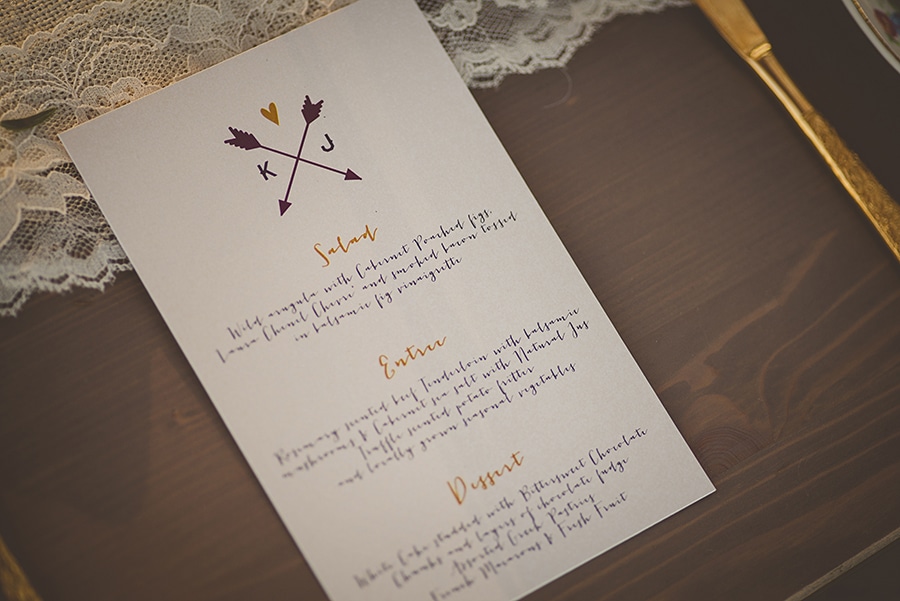 K J
Salad
Wild arugula with Cabernet Poached figs,
Laura Chenel Chevre and smoked bacon tossed
in balsamic fig vinaigrette
Entree
Rosemary scented beef Tenderloin with balsamic
mushrooms & Cabernet sea salt with Natural Jus
Truffle scented potato fritter
and locally grown seasonal vegetables
Dessert
White Cake studded with Bittersweet Chocolate
Chunks and layers of chocolate fudge
Assorted Greek Pastries
French Macarons & Fresh Fruit